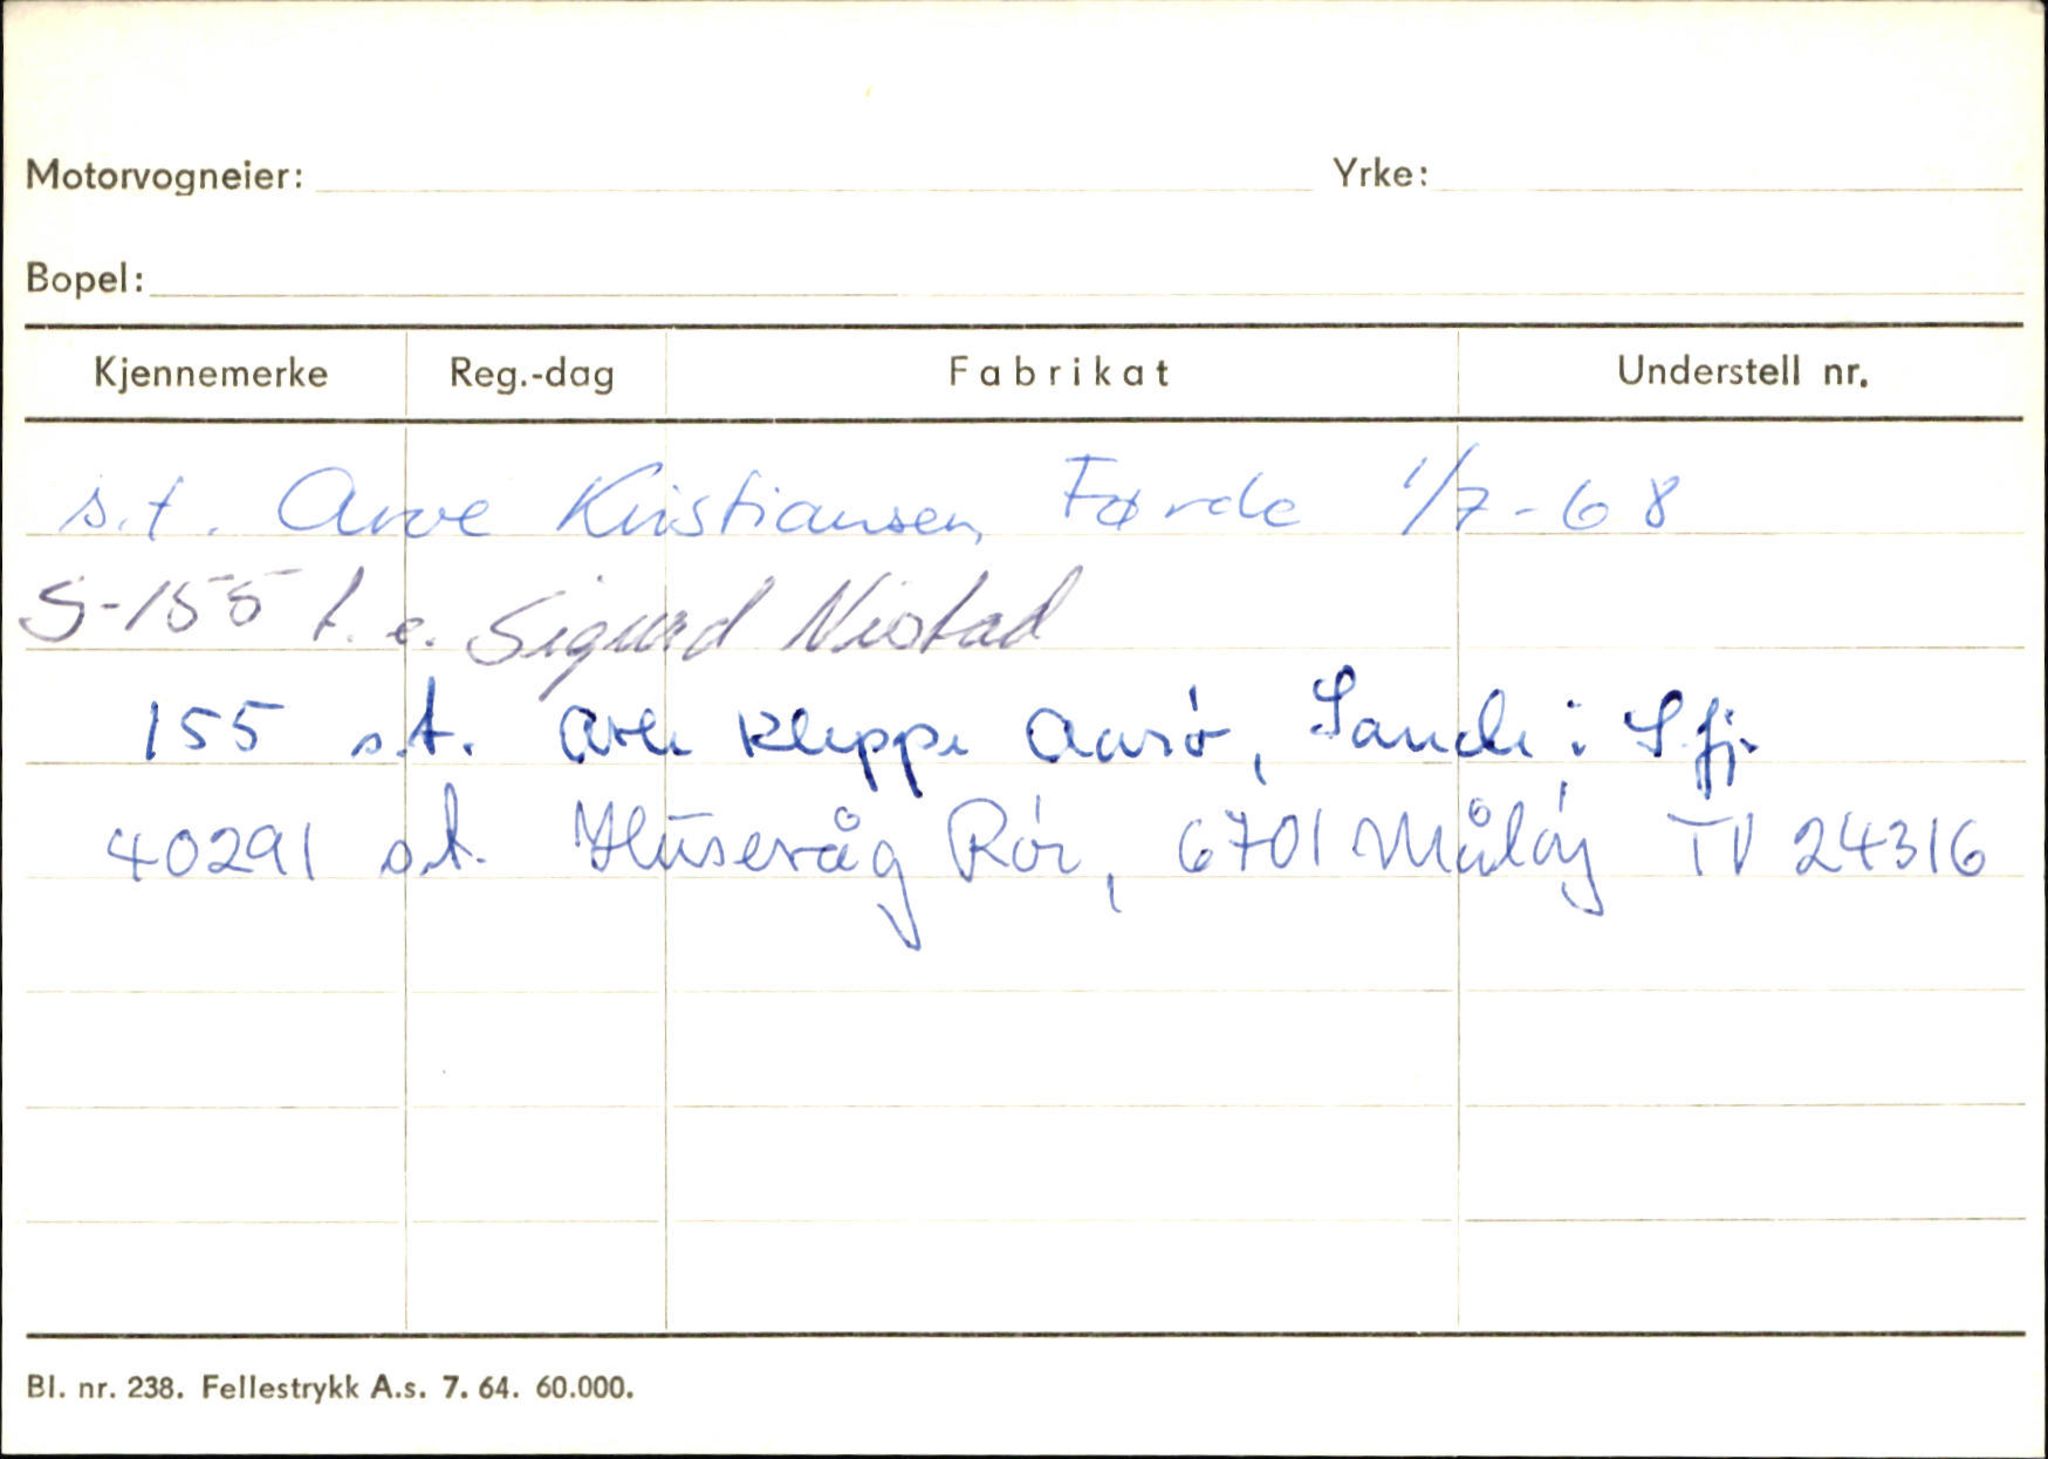 Motorvogneier: Yrke:
Bopel:
Kjennemerke Reg.-dag Fabrikat Understell nr.
s.t. Arve Kristiansen, Førde 1/7-68
S-155 t. e. Sigurd Nistad
155 s.t. Atle Kleppe Aarø, Sande i S.fj.
40291 s.t. Husevåg Rør, 6701 Måløy TV 24316
Bl. nr. 238. Fellestrykk A.s. 7. 64. 60.000.